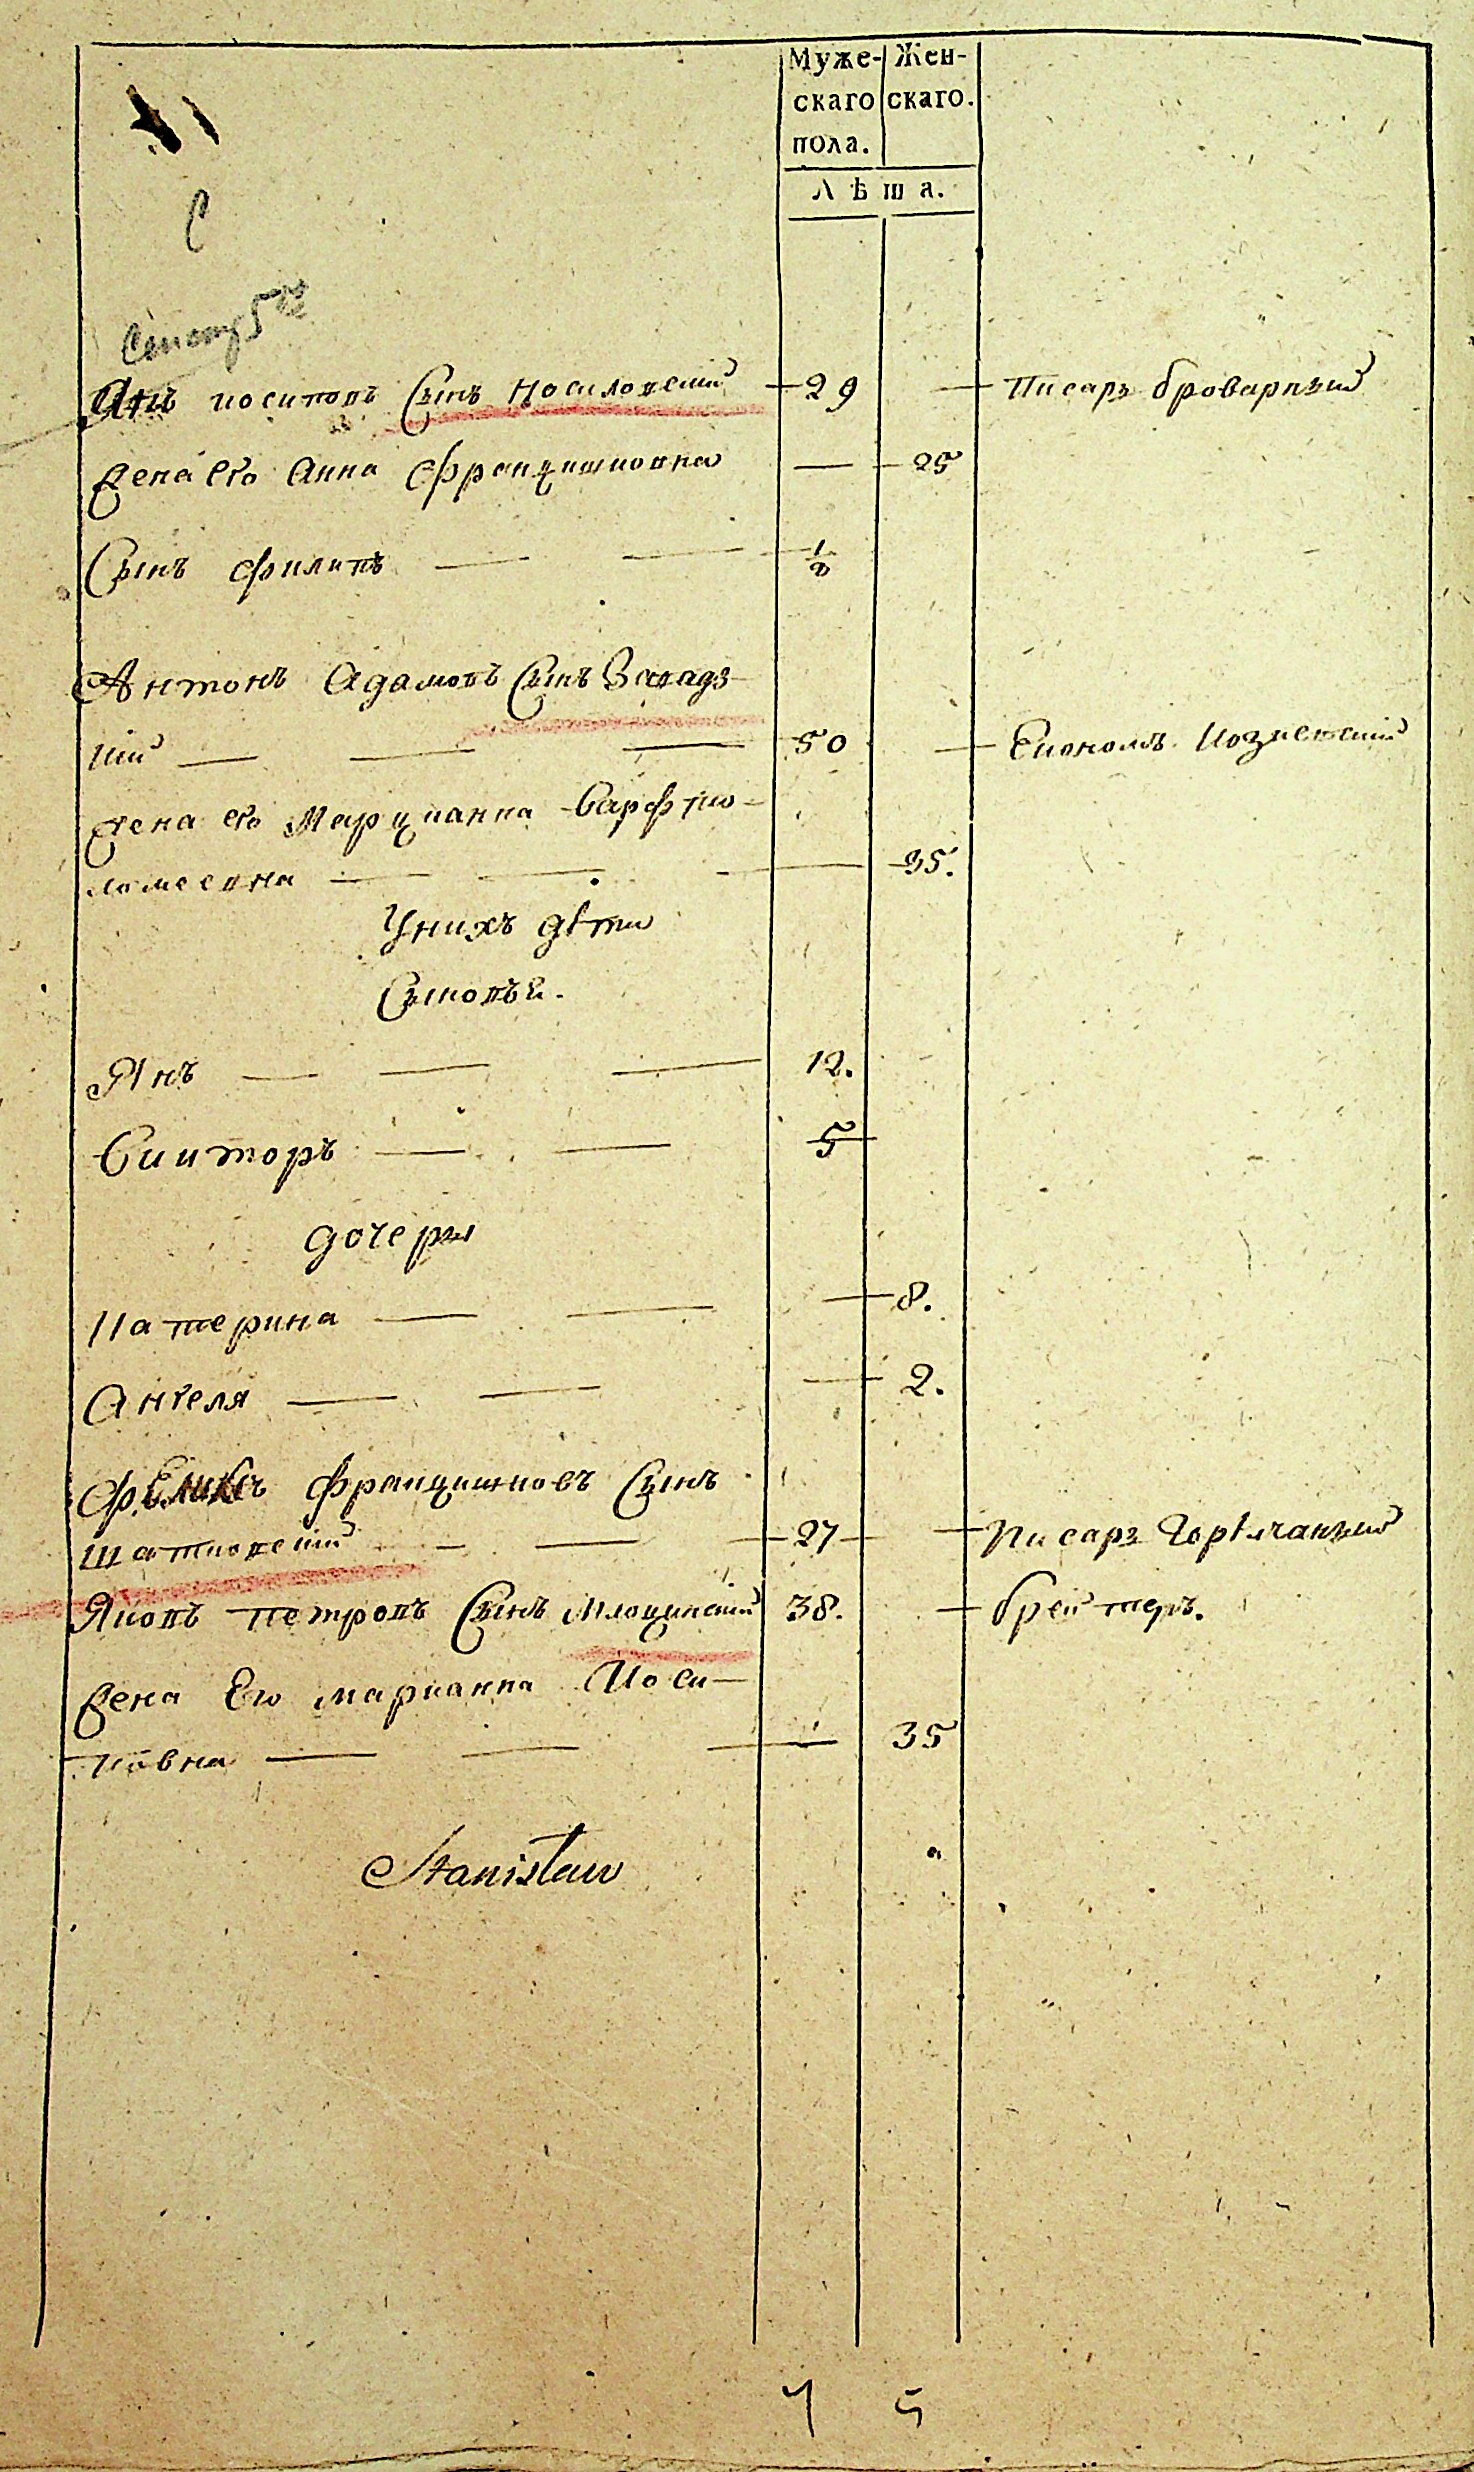 Муже- Жен-
скаго скаго.
пола.
Лѣта.
С
Янъ иосиповъ Сынъ Носиловский 29 Писарь броварный
Жена его Анна Францишковна 25
Сынъ Филипъ 1/2
Антонъ Адамовъ Сынъ Завадз-
кий 50 Економъ
жена его Марцианна Варфто-
ломеевна 35.
У нихъ дѣти
Сыновьи.
Янъ 12.
Викторъ 5
дочеры
Катерина 8.
Ангеля 2.
Феликсъ Францишковъ Сынъ
Шатковский 27 Писарь Горѣлчаный
Яковъ Петровъ Сынъ Млоцинский 38. брейтеръ.
Жена Его марианна Иоси-
повна 35
Stanisław
7 5